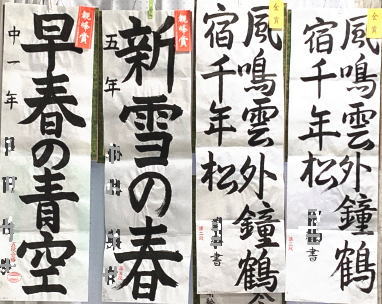 金賞
風鳴雲外鐘鶴
宿千年松
書
金賞
風鳴雲外鐘鶴
宿千年松
書
観峰賞
新雪の春
五年
観峰賞
早春の青空
中一年